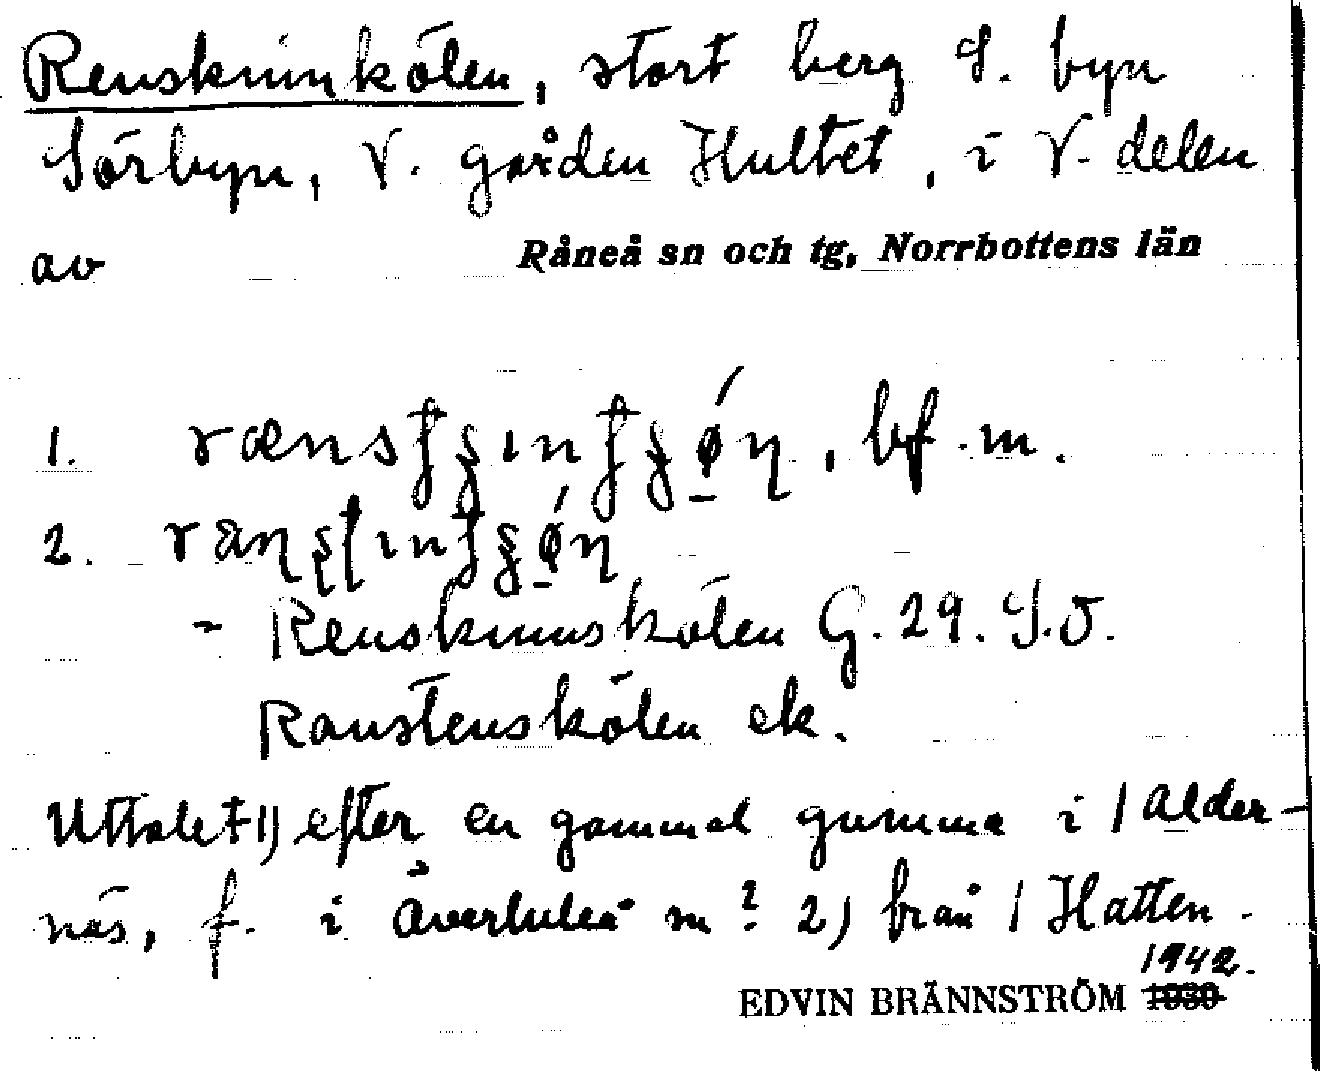 Renskinnkölen, stort berg S. byn
Sörbyn, V. gården Hultet, i V. delen
av Råneå sn och tg, Norrbottens län
1. , bf. m.
2.
- Renskinnskölen G. 29. S.O.
Ranstenskölen ek.
Uttalet 1) efter en gammal gumma i / Alder-
näs, f. i Överluleå sn? 2) från / Hatten.
1942.
EDVIN BRÄNNSTRÖM 1930